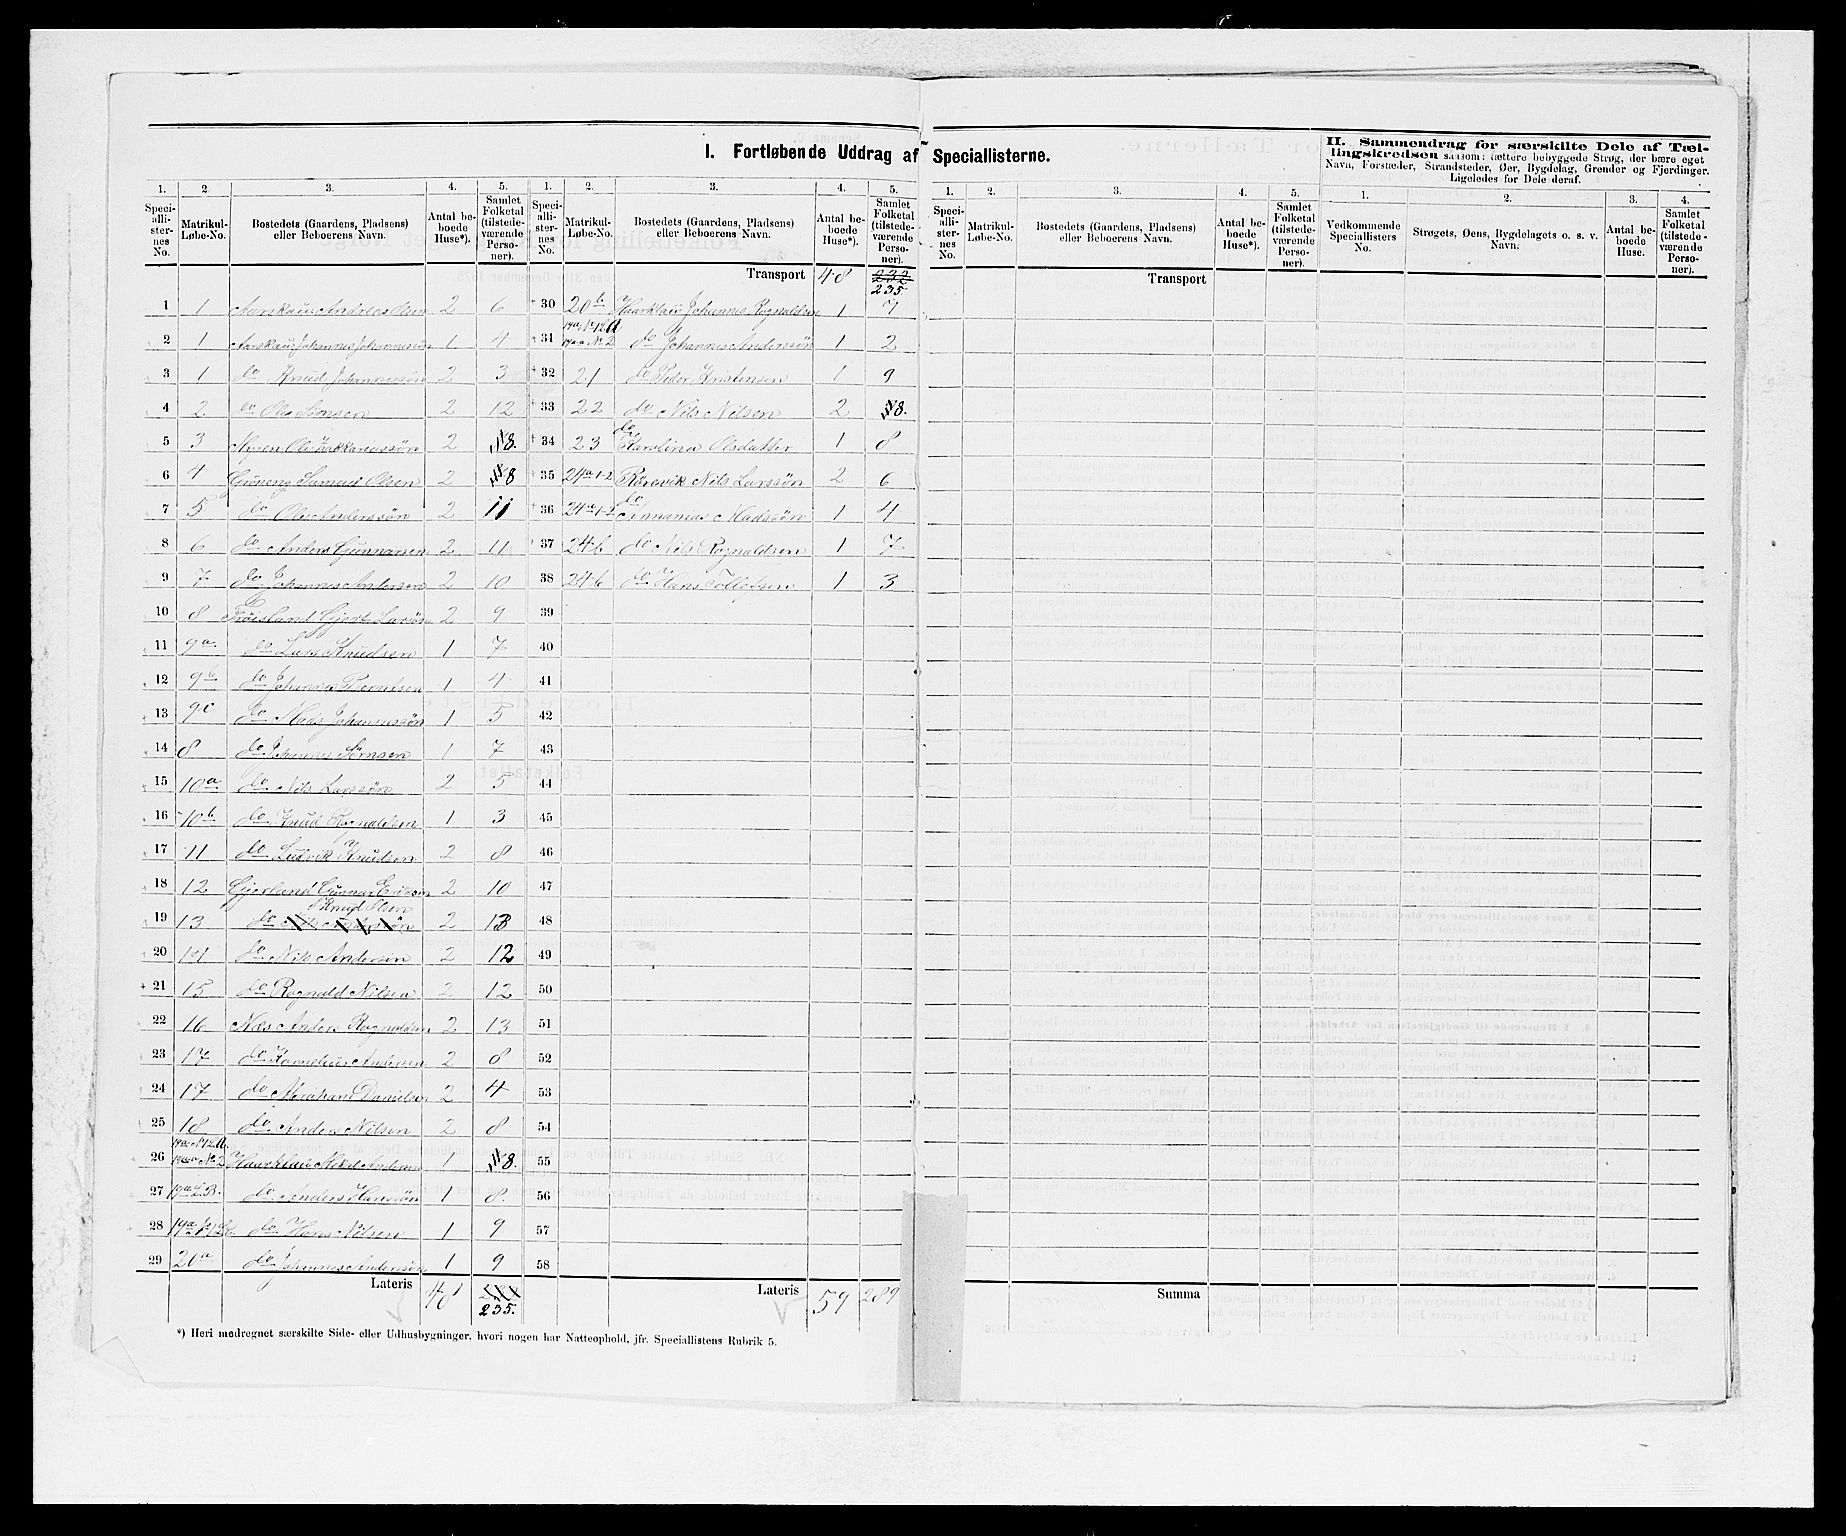 I. Fortløbende Uddrag af Speciallisterne.
II. Sammendrag for særskilte Dele af Tæl-
lingskredsen saasom: tættere bebyggede Strøg, der bære eget
Navn, Forstæder, Strandsteder, Øer, Bygdelag, Grender og Fjerdinger.
Ligeledes for Dele deraf.
1. 2. 3. 4. 5. 1. 2. 3. 4. 5. 1. 2. 3. 4. 5. 1. 2. 3. 4.
Speciallisternes No. Matrikul-Løbe-No. Bostedets (Gaardens, Pladsens) eller Beboerens Navn. Antal beboede Huse*). Samlet Folketal (tilstedeværende Personer).
Speciallisternes No. Matrikul-Løbe-No. Bostedets (Gaardens, Pladsens) eller Beboerens Navn. Antal beboede Huse*). Samlet Folketal (tilstedeværende Personer).
Speciallisternes No. Matrikul-Løbe-No. Bostedets (Gaardens, Pladsens) eller Beboerens Navn. Antal beboede Huse*). Samlet Folketal (tilstedeværende Personer).
Vedkommende Speciallisters No. Strøgets, Øens, Bygdelagets o. s. v. Navn. Antal beboede Huse. Samlet Folketal (tilstedeværende Personer).
1 1 Aarskaug Andreas Olsen 2 6
2 1 Aarskaug Johannes Johannessøn 1 4
3 1 do Knud Johannessøn 2 3
4 2 do Ole Simonsen 2 12
5 3 Ole Zakkariassøn 2 8.
6 4 Grøneng Samuel Olsen 2 8
7 5 do Ole Anderssøn 2 11
8 6 do Anders Gunnarsen 2 11
9 7 do Johannes Andersen 2 10
10 8 Frøisland Gjert Larsøn 2 9
11 9a. do Lars Knudsen 1 7
12 9b do Johannes Berntsen 1 4
13 9c do Mads Johannessøn 1 5
14 8 do Johannes 1 7
15 10a do Nils Larssøn 2 5
16 10b do Knud Rognaldsen 1 3
17 11 do Ludvik Knudsen 2 8
18 12 Gjerland Gunnar Erikson 2 10
19 13 do Knud Olsen 2 13
20 14 do Nils Andersøn 2 12
21 15 do Rognald Nilsen 2 12
22 16 Næs Anders Rognaldsen 2 13
23 17 do Kornelius Andersen 2 8
24 17 do Abraham Danielsen 2 4
25 18 do Anders Nilsen 2 8
26 Haarklau Mikel Andersen 1 8.
27 do Anders Hanssøn 1 8.
28 do Hans Nilsen 1 9
29 20a do Johannes Andersøn 1 9
Lateris 48 235.
Transport 48 232
235.
30 20b Haarklau Johannes Rognaldsen 1 7
31 do Johannes Anderssøn 1 2
32 21 do Peder Kristensen 1 9
33 22 do Nils Nilsen 2 8.
34 23 do Karolina Olsdatter 1 8
35 24a 1-2 Rørvik Nils Larssøn 2 6
36 do Annanias Madssøn 1 4
37 24b do Nils Rognaldsen 1 7
38 24b do Hans Tollefsen 1 3
39
40
41
42
43
44
45
46
47
48
49
50
51
52
53
54
55
56
57
58
Lateris 59 289
Transport
Summa
*) Heri medregnet særskilte Side- eller Udhusbygninger, hvori nogen har Natteophold, jfr. Speciallistens Rubrik 5.